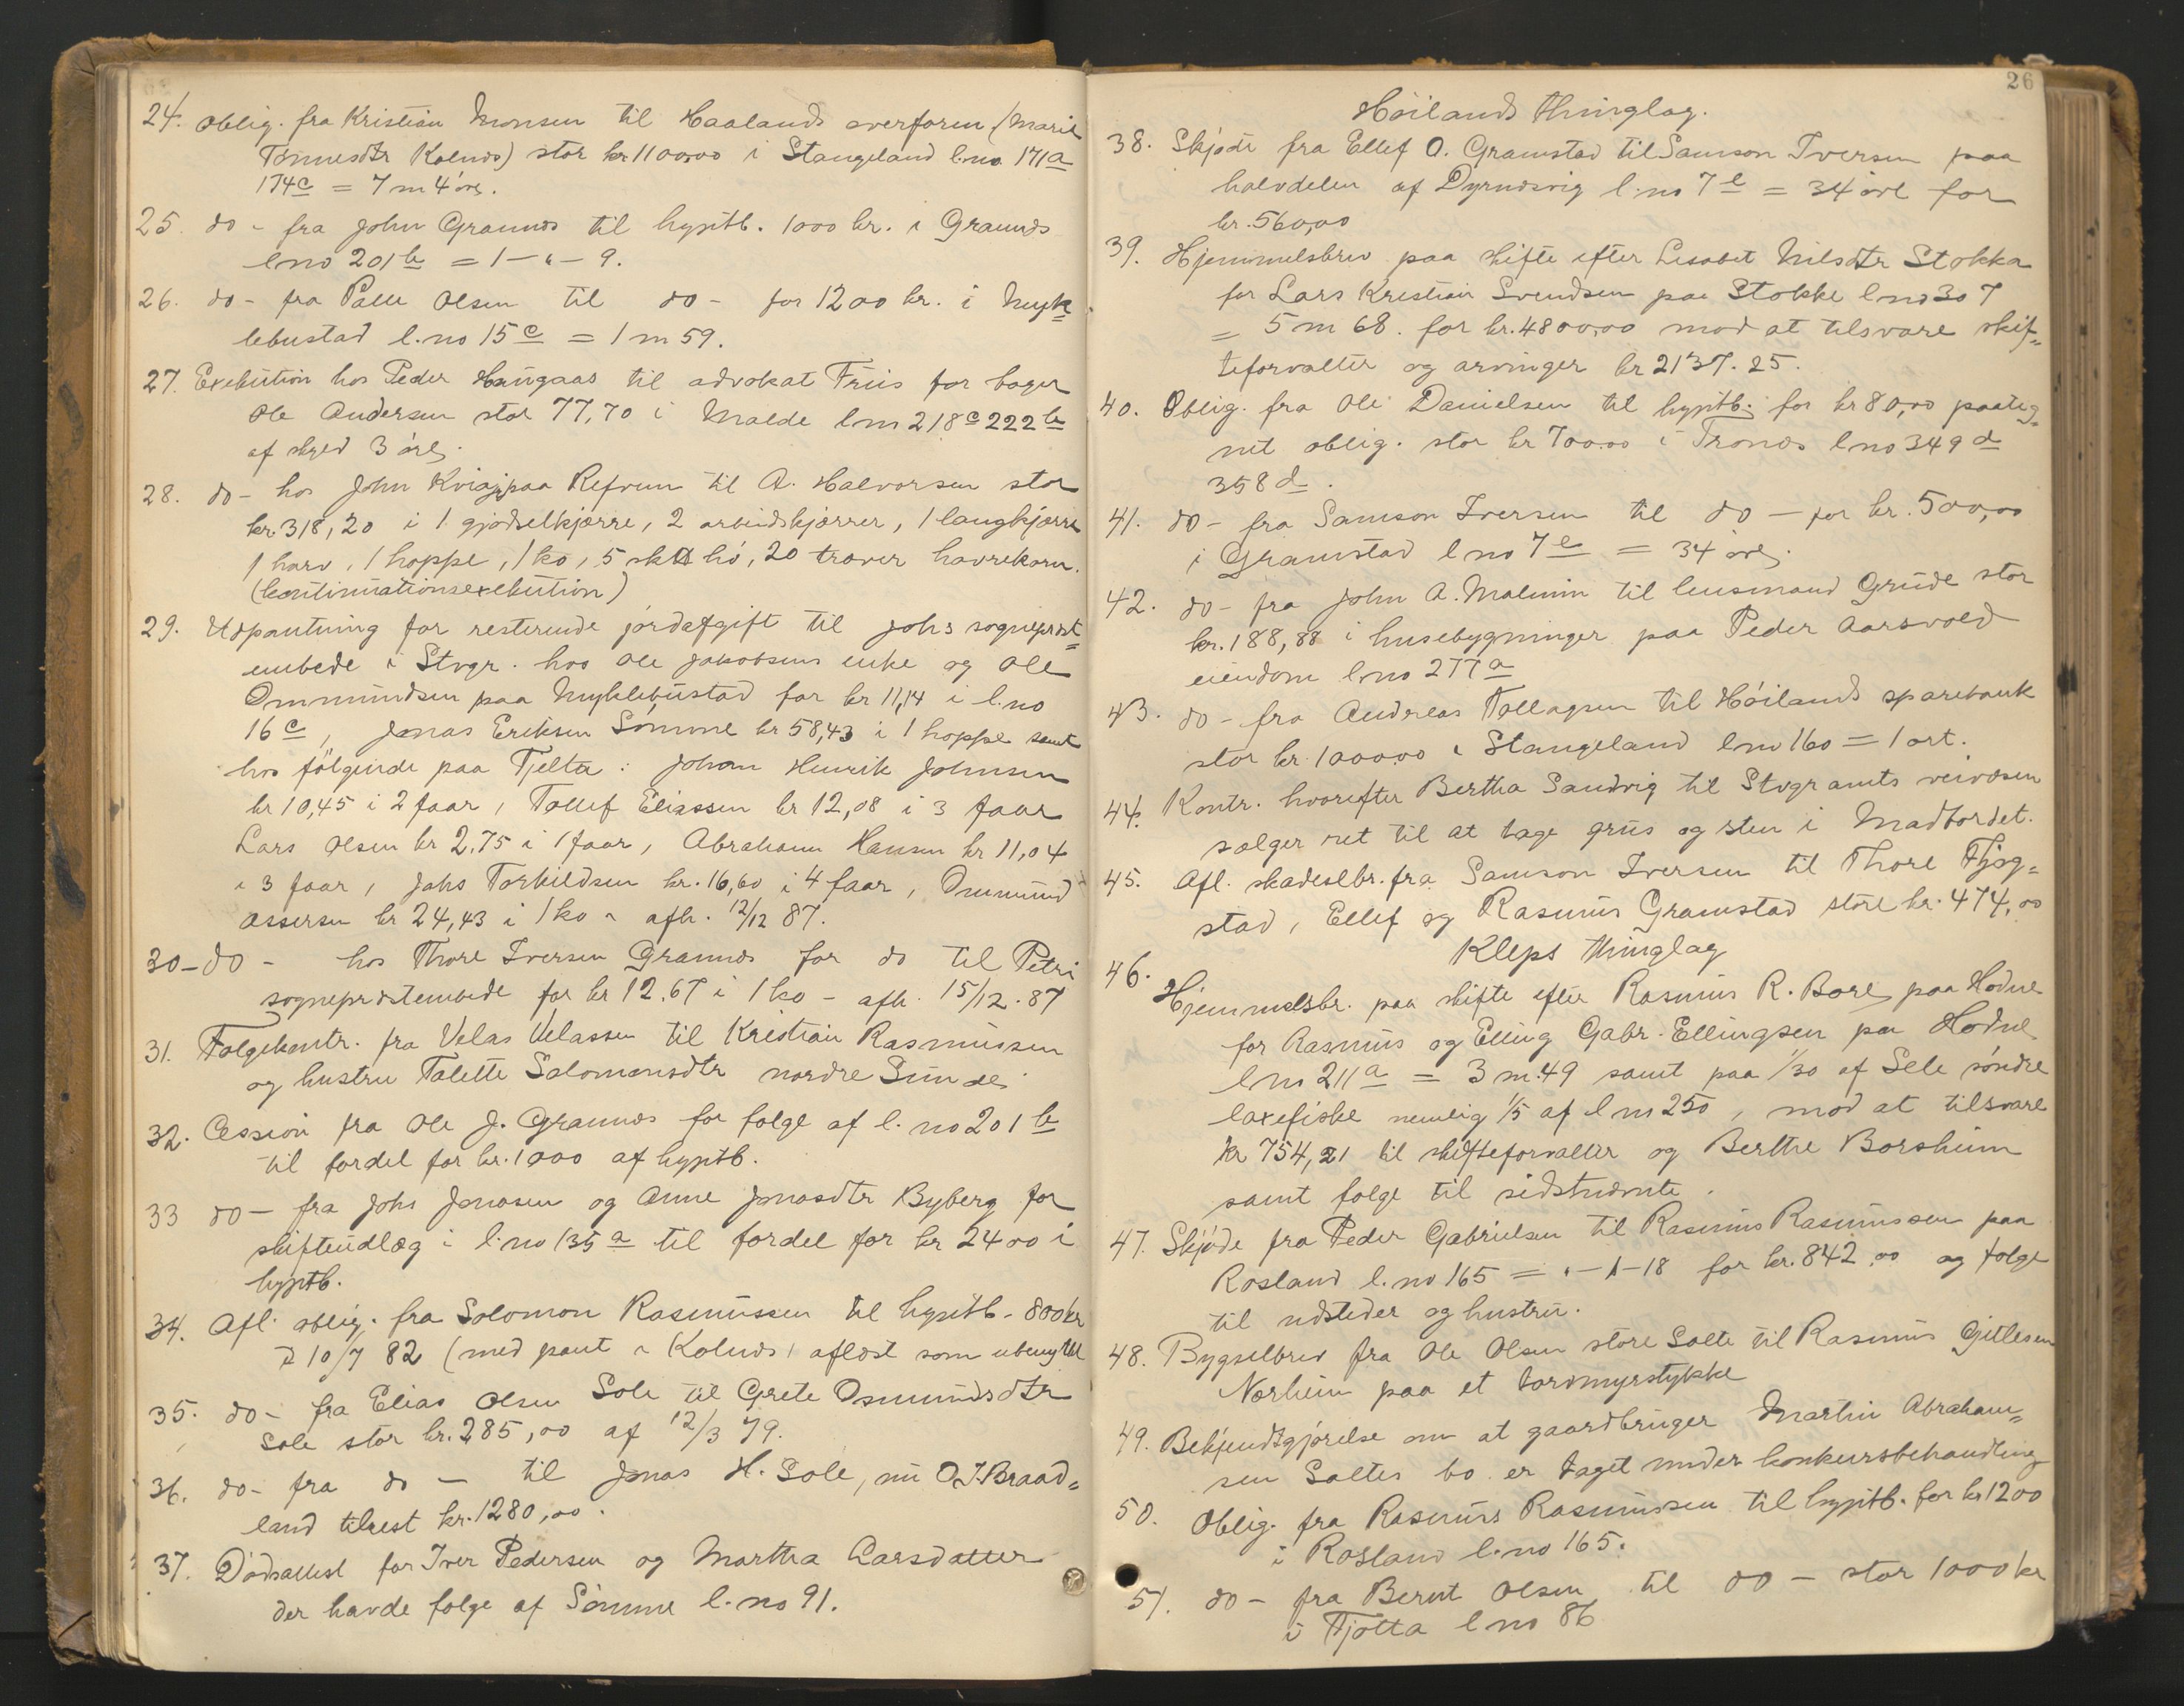 24. Oblig. fra Kristian Monsen til Haalands overform. (Marie
Tønnesdtr Kolnes) stor kr 1100,00 i Stangeland l.no 171a
174c = 7 m 4 øre.
25. do - fra John Grannes til hyptb. 1000 kr. i Grannes
l no 201 b = 1 - " - 9.
26. do - fra Palle Olsen til do - for 1200 kr. i Myk=
lebustad l.no 15c = 1 m 59.
27. Exekution hos Peder Haugaas til advokat Friis for bager
Ole Andersen stor 77,70 i Malde l no 218c 222b
af skyld 3 øre.
28. do - hos John Kviaj paa Refvem til A. Halvorsen stor
kr. 318,20 i 1 gjødselkjærre, 2 arbeidskjærrer, 1 langkjærre
1 harv, 1 hoppe, 1 ko, 5 sk hø, 20 traver havrekorn.
(kontinuationsexekution)
29. Udpantning for resterende jordafgift til Johs sogneprest=
embede i Stvgr. hos Ole Jakobsens enke og Ole
Ommundsen paa Myklebustad for kr 11,14 i l.no
16c, Jonas Eriksen Sømme kr 58,43 i 1 hoppe samt
hos følgende paa Tjelta: Johan Henrik Johnsen
kr 10,45 i 2 faar, Tollef Eliassen kr 12,08 i 3 faar
Lars Olsen kr 2.75 i 1 faar, Abraham Hansen kr 11,04
i 3 faar, Johs Torkildsen kr. 16,60 i 4 faar, Ommund
Assersen kr 24,43 i 1 ko - afh. 12/12 87.
30 - do - hos Thore Iversen Grannes for do til Petri
sogneprestembede for kr 12.67 i 1 ko - afh. 15/12. 87
31. Følgekontr. fra Velas Velassen til Kristian Rasmussen
og hustru Talette Salomonsdtr nordre Sunde
32. Cession fra Ole J. Grannes for følge af l. no 201 b
til fordel for kr. 1000 af hyptb.
33 do - fra Johs Jonasen og Anne Jonasdtr Byberg for
skifteudlæg i l.no 135a til fordel for kr 2400 i
hyptb.
34. Afl. oblig. fra Solomon Rasmussen til hyptb - 800 kr
10/7 82 (med pant i Kolnes, aflæst som ubenyttet
35. do - fra Elias Olsen Sole til Grete Osmundsdtr
Sole stor kr. 285,00 af 12/3 79.
36. do - fra do - til Jonas H. Sole, nu O. I. Braad=
land tilrest kr. 1280,00.
37. Dødsattest for Iver Pedersen og Martha Larsdatter
der havde følge af Sømme l. no 91.
26
Høilands thinglag.
38. Skjøde fra Ellef O. Gramstad til Samson Iversen paa
halvdelen af Dyrnesvig l. no 7e = 34 øre for
kr. 560,00
39. Hjemmelsbrev paa skifte efter Lisabet Nilsdtr Stokka
for Lars Kristian Svendsen paa Stokke l no 307
= 5 m 68. for kr. 4800,00 mod at tilsvare skif=
teforvalter og arvinger kr 2137.25.
40. Oblig. fra Ole Danielsen til hyptb. for kr 80,00 paateg=
net oblig. stor kr 700.00 i Tronæs l no 349 d
358 d.
41. do - fra Samson Iversen til do - for kr. 500,00
i Gramstad l no 7e = 34 øre.
42. do - fra John A. Malmin til lensmand Grude stor
kr. 188,88 i husebygninger paa Peder Aarsvold
eiendom l.no 277a
43. do - fra Andreas Tollagsen til Høilands sparebank
stor kr. 1000.00 i Stangeland l no 160 = 1 ort.
44. Kontr. hvorefter Bertha Sandvig til Stvgr amts veivæsen
sælger ret til at tage grus og sten i Madbordet.
45. Afl. skadeslbr. fra Samson Iversen til Thore Fjog=
stad, Ellef og Rasmus Gramstad store kr. 474,00
Kleps thinglag
46. Hjemmelsbr. paa skifte efter Rasmus R. Bore paa Hodne
for Rasmus og Elling Gabr. Ellingsen paa Hodne
l no 211a = 3 m. 49 samt paa 1/30 af Sele søndre
laxefiske nemlig 1/5 af l no 250, mod at tilsvare
kr 754,21 til skifteforvalter og Berthe Borsheim
samt følge til sidstnævnte.
47. Skjøde fra Peder Gabrielsen til Rasmus Rasmussen paa
Rosland l. no 165 = " - 1 - 18 for kr. 842,00 og følge
til udsteder og hustru.
48. Bygselbrev fra Ole Olsen store Salte til Rasmus Gitlesen
Nærheim paa et torvmyrstykke
49. Bekjendtgjørelse om at gaardbruger Martin Abraham=
sen Saltes bo er taget under konkursbehandling
50. Oblig. fra Rasmus Rasmussen til hyptb. for kr 1200
i Rosland l.no 165.
51. do - fra Bernt Olsen til do - stor 1000 kr
i Tjøtta l no 86